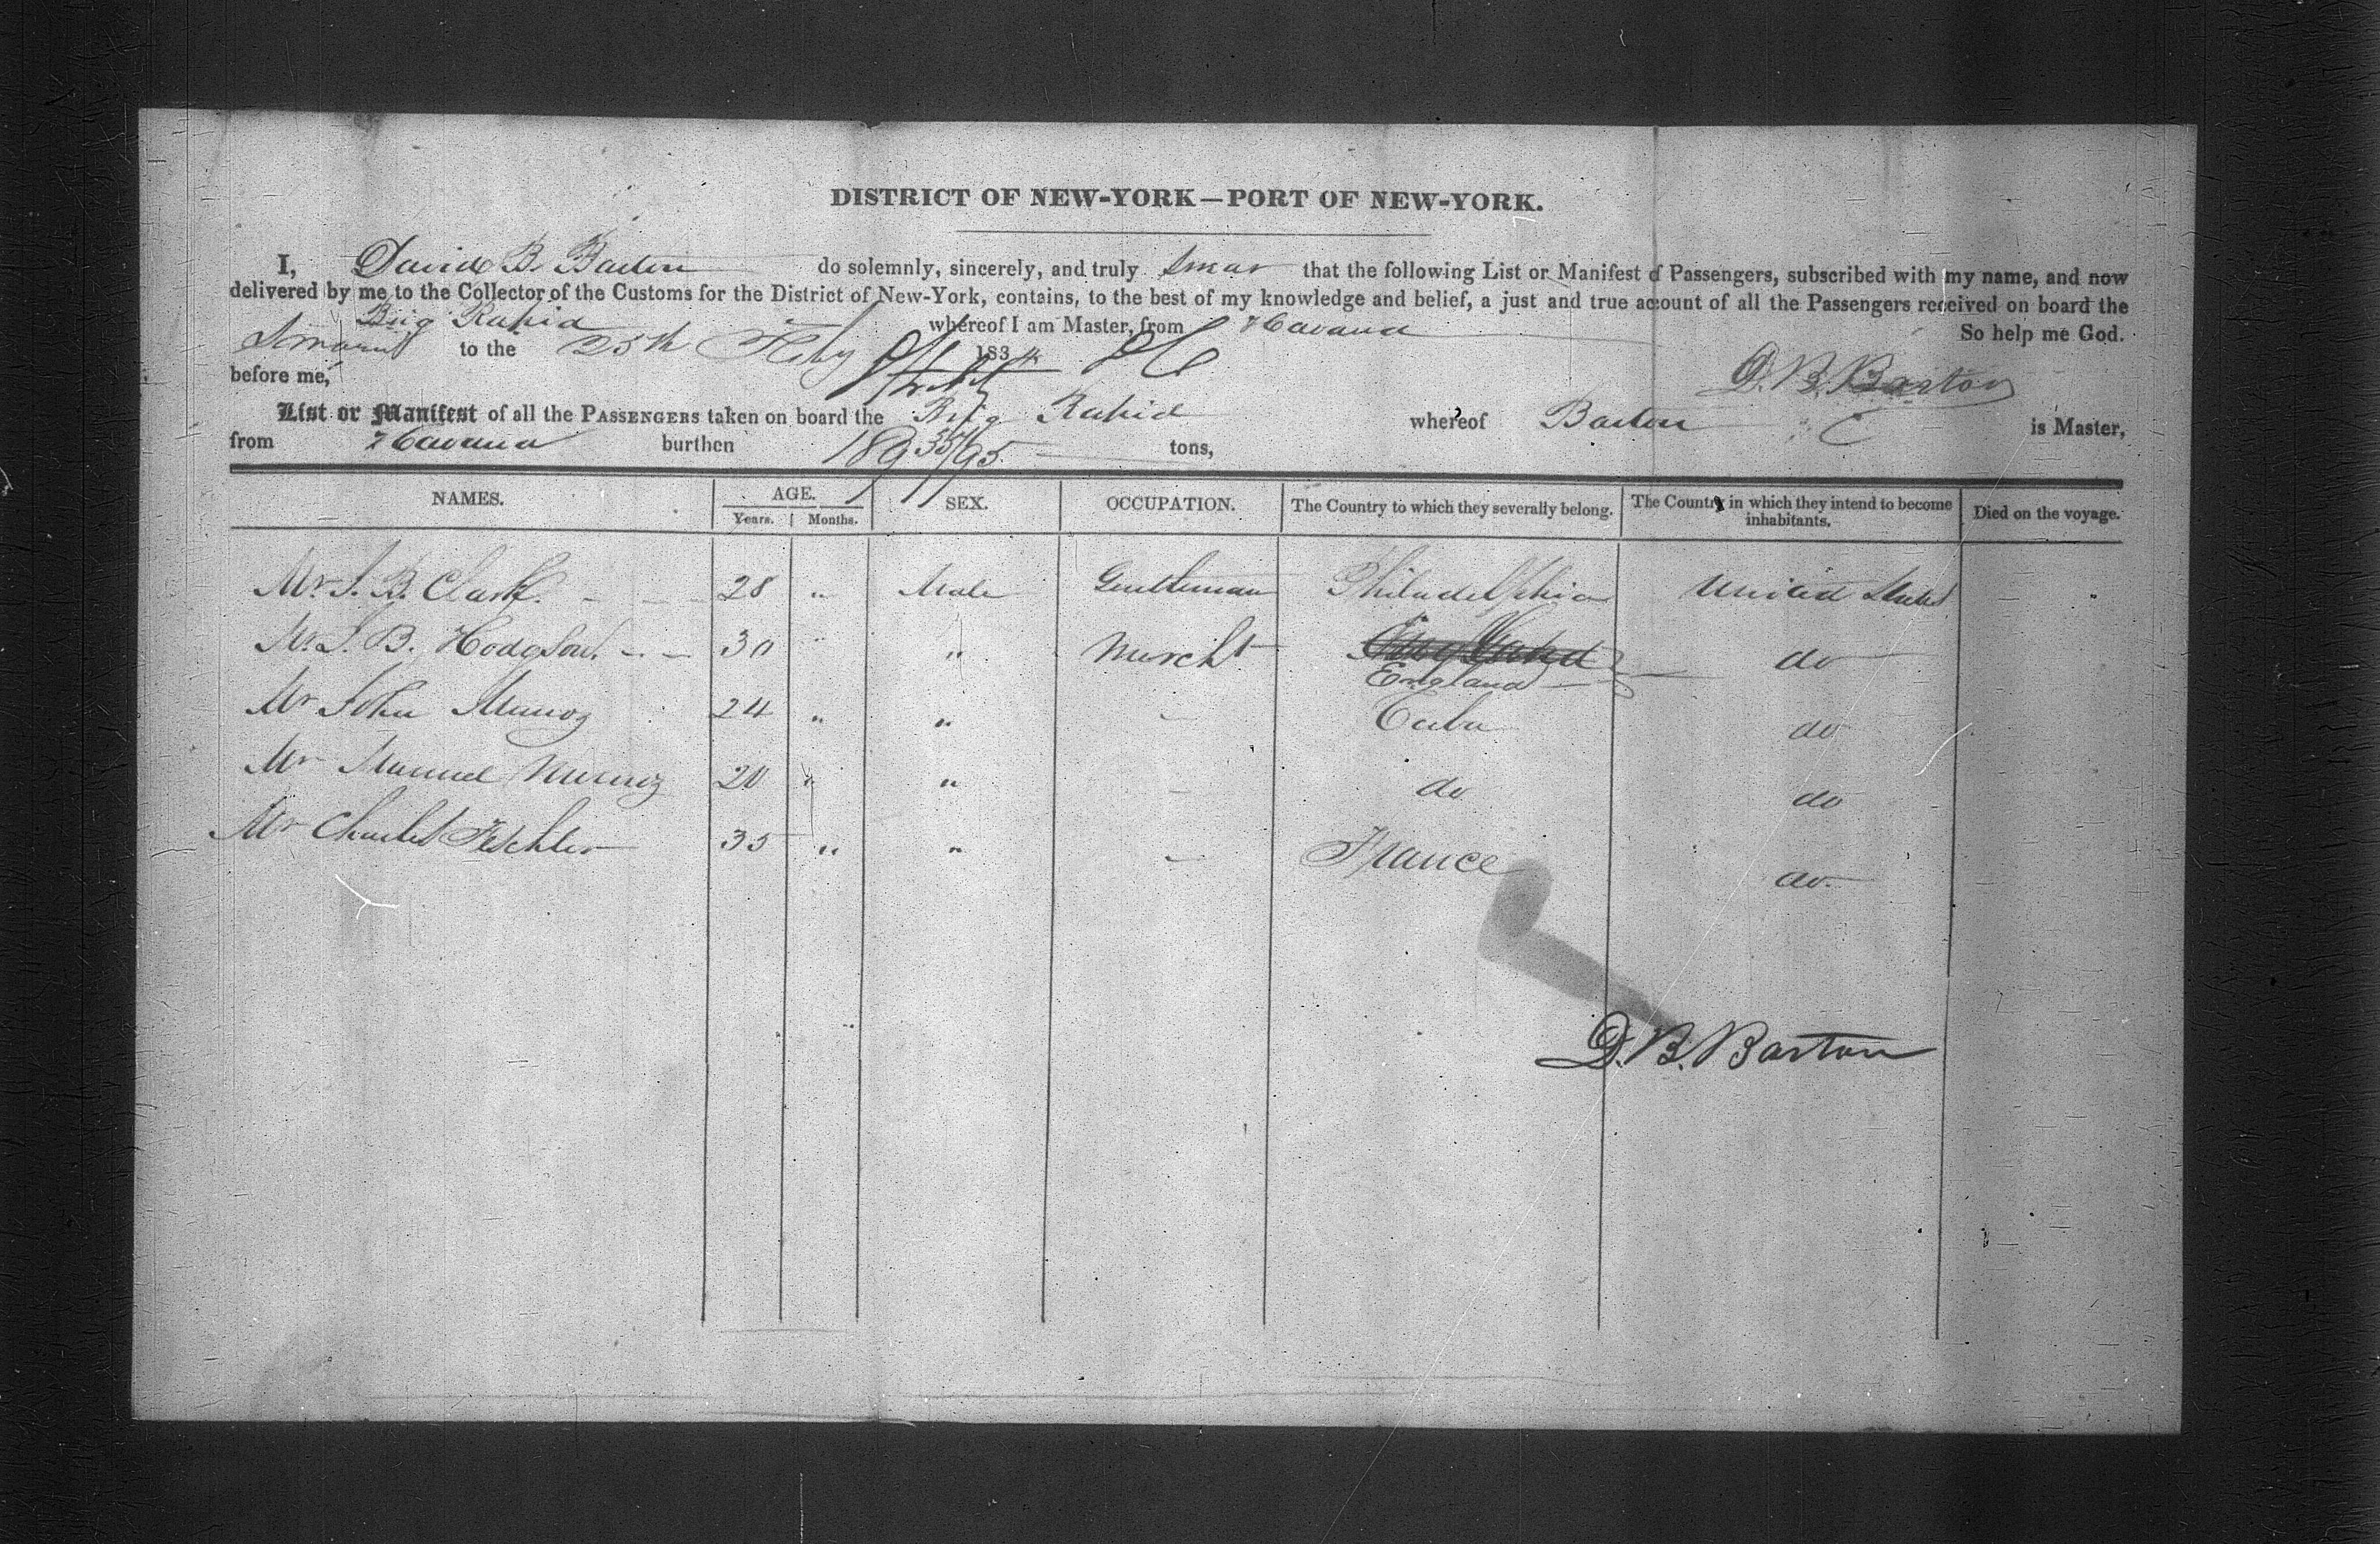 DISTRICT OF NEW-YORK—PORT OF NEW-YORK.
I, David B. Barton do solemnly, sincerely, and truly swear that the following List or Manifest of Passengers, subscribed with my name, and now
delivered by me to the Collector of the Customs for the District of New-York, contains, to the best of my knowledge and belief, a just and true account of all the Passengers received on board the
Brig Rapid whereof I am Master, from Havana So help me God.
Sworn to the 25th Feby 1834
before me, D. B. Barton
List or Manifest of all the PASSENGERS taken on board the Brig Rapid whereof Barton is Master,
from Havana burthen 189 35/95 tons,
NAMES. AGE. SEX. OCCUPATION. The Country to which they severally belong. The Country in which they intend to become inhabitants. Died on the voyage.
Years. Months.
Mr. J. B. Clark. - - - 28 " Male Gentleman Philadelphia United States
Mr. J. B. Hodgson. - - 30 " " Mercht England do
England
Mr John Munoz 24 " " - Cuba do
Mr Manuel Munoz 20 " " - do do
Mr Charles 35 " " - France do.
D. B. Barton